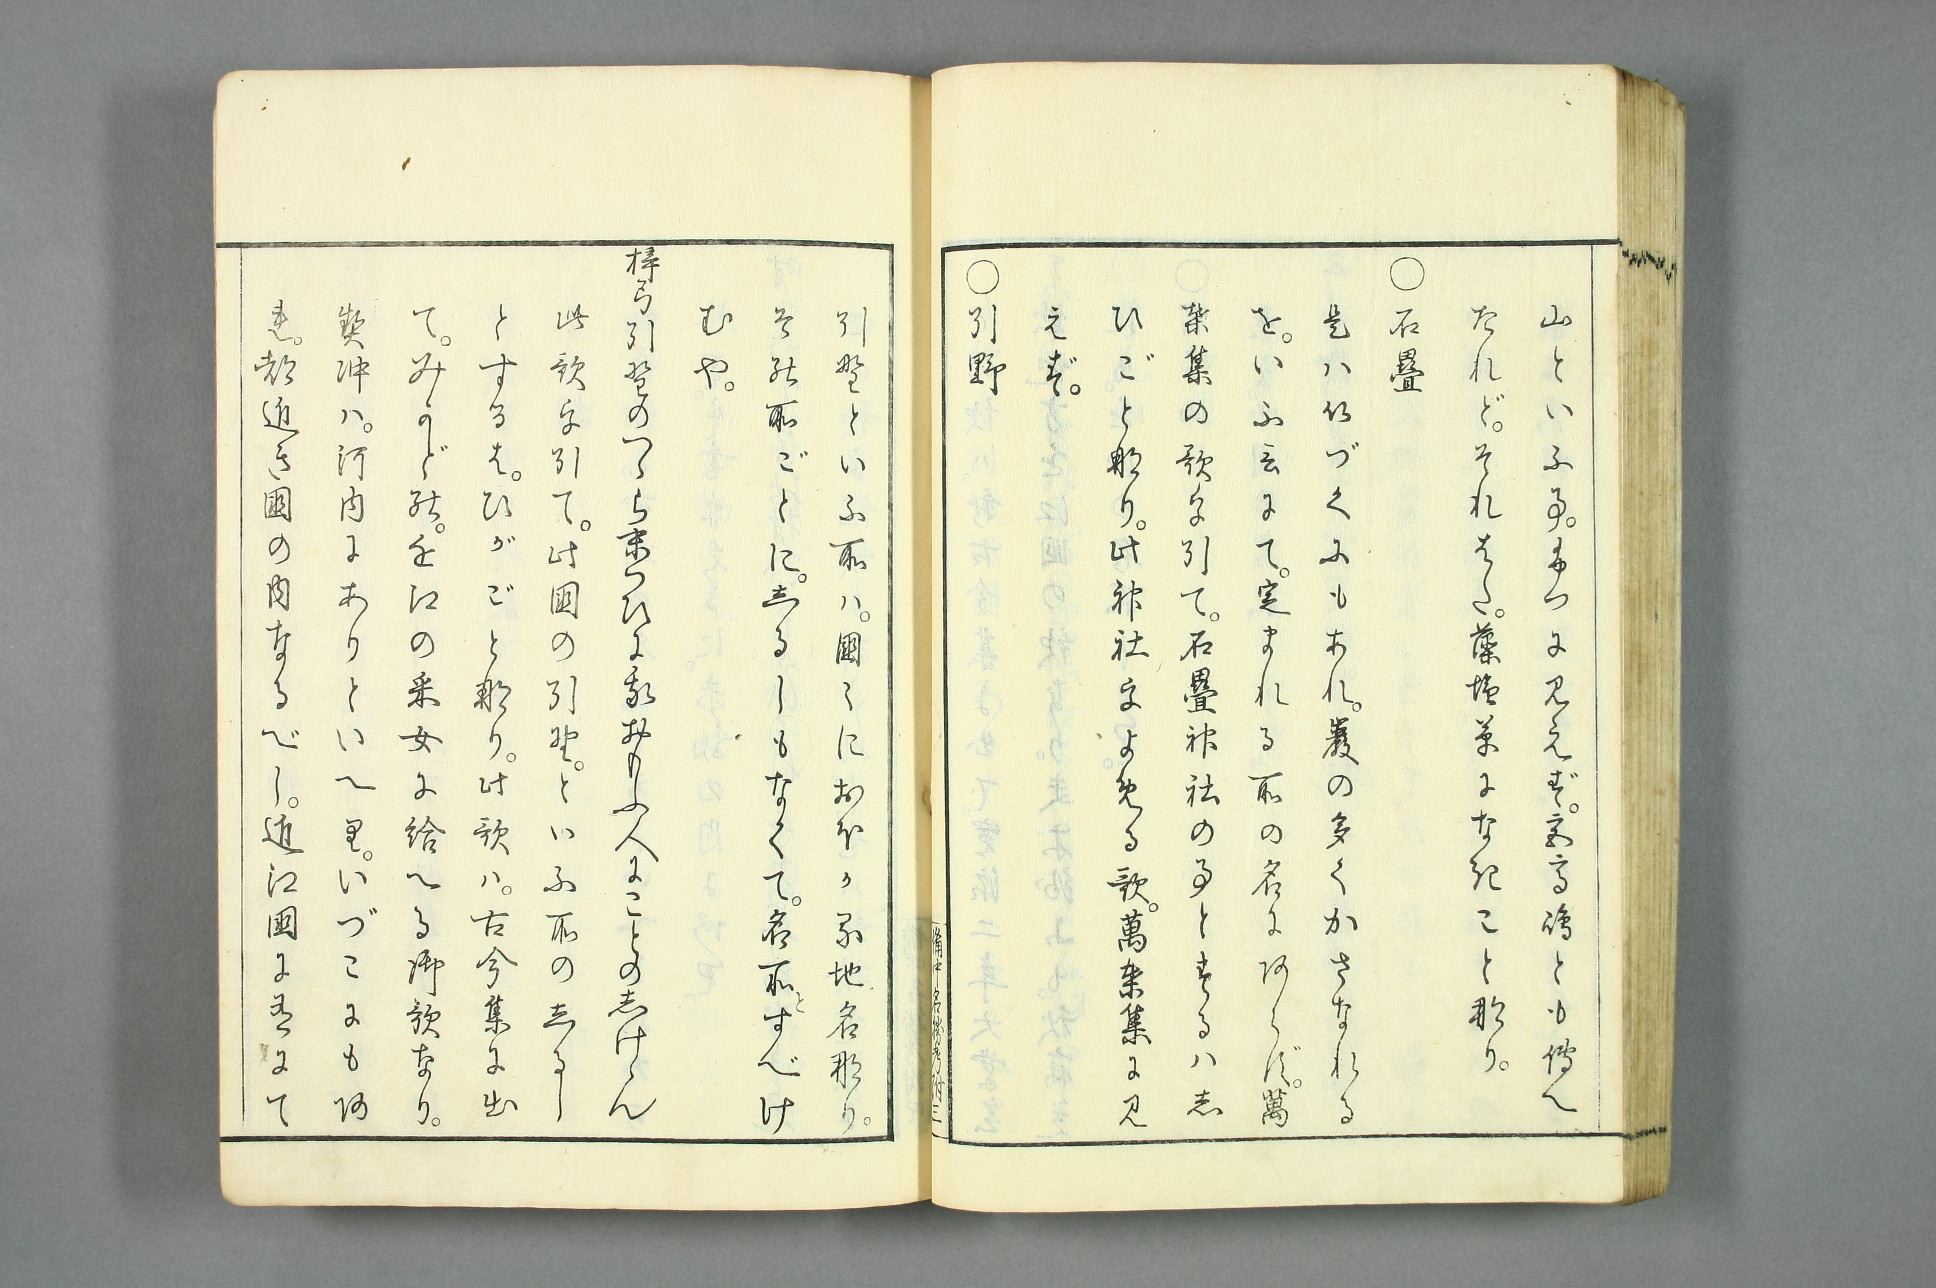 山といふ事。ふつに見えず。家高嶋とも傳へ
たれど。それはた。藻塩草になきこと那り。
○石疊
是ハ何づくにもあれ。巖の多くかさなれる
を。いふ言にて。定まれる所の名にあらず。萬
葉集の歌を引て。石疊神社の事とするハ志
ひごと那り。此神社をよめる歌。萬葉集に見
えず。
○引野
備中名勝考附三
引野といふ所ハ。國〻におほかる地名那り。
それ所ごとに。志るしもなくて。名所とすべけ
むや。
梓弓引野のつゝら末つひに我おもふ人にことの志けけん
此歌を引て。此國の引野。といふ所の志るし
とするは。ひがごと那り。此歌ハ。古今集に出
て。みかど能。近江の釆女に給へる御歌なり。
契沖ハ。河内にありといへ里。いづこにもあ
れ。都近き國の内なるべし。近江國に有にて